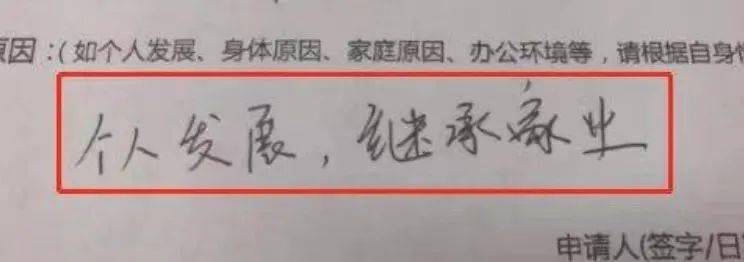 原因：(如个人发展、身体原因、家庭原因、办公环境等，请根据自身
个人发展，继承家业
申请人(签字/日